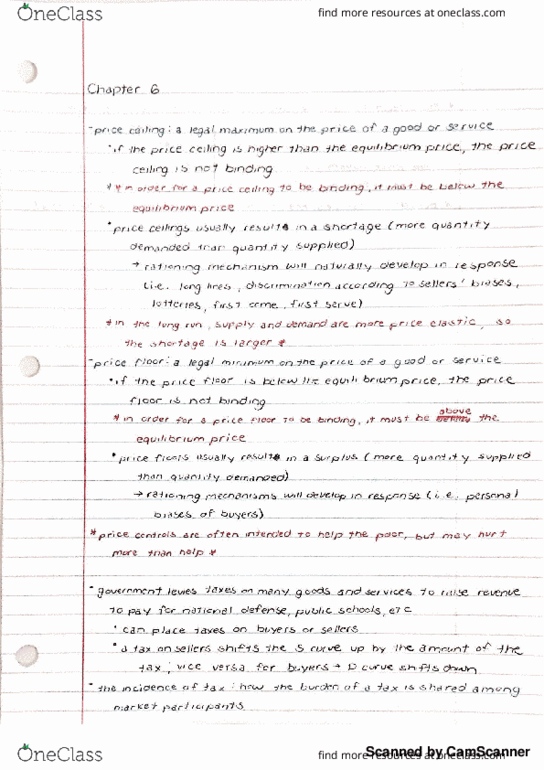 OneClass
find more resources at oneclass.com
Chapter 6
-price ceiling: a legal maximum on the price of a good or service
•if the price ceiling is higher than the equilibrium price, the price
ceiling is not binding
**in order for a price ceiling to be binding, it must be below the
equilibrium price
•price ceilings usually results in a shortage (more quantity
demanded than quantity supplied)
→ rationing mechanism will naturally develop in response
(i.e. long lines, discrimination according to sellers' biases,
lotteries, first come, first serve)
*in the long run, supply and demand are more price elastic, so
the shortage is larger *
-price floor: a legal minimum on the price of a good or service
•if the price floor is below the equilibrium price, the price
floor is not binding
*in order for a price floor to be binding, it must be above the
equilibrium price
•price floors usually results in a surplus (more quantity supplied
than quantity demanded)
→ rationing mechanisms will develop in response (i.e. personal
biases of buyers)
*price controls are often intended to help the poor, but may hurt
more than help *
-government levies taxes on many goods and services to raise revenue
to pay for national defense, public schools, etc
•can place taxes on buyers or sellers
•a tax on sellers shifts the S curve up by the amount of the
tax; vice versa for buyers → D curve shifts down
-the incidence of tax: how the burden of a tax is shared among
market participants
OneClass
find more resources at oneclass.com
Scanned by CamScanner